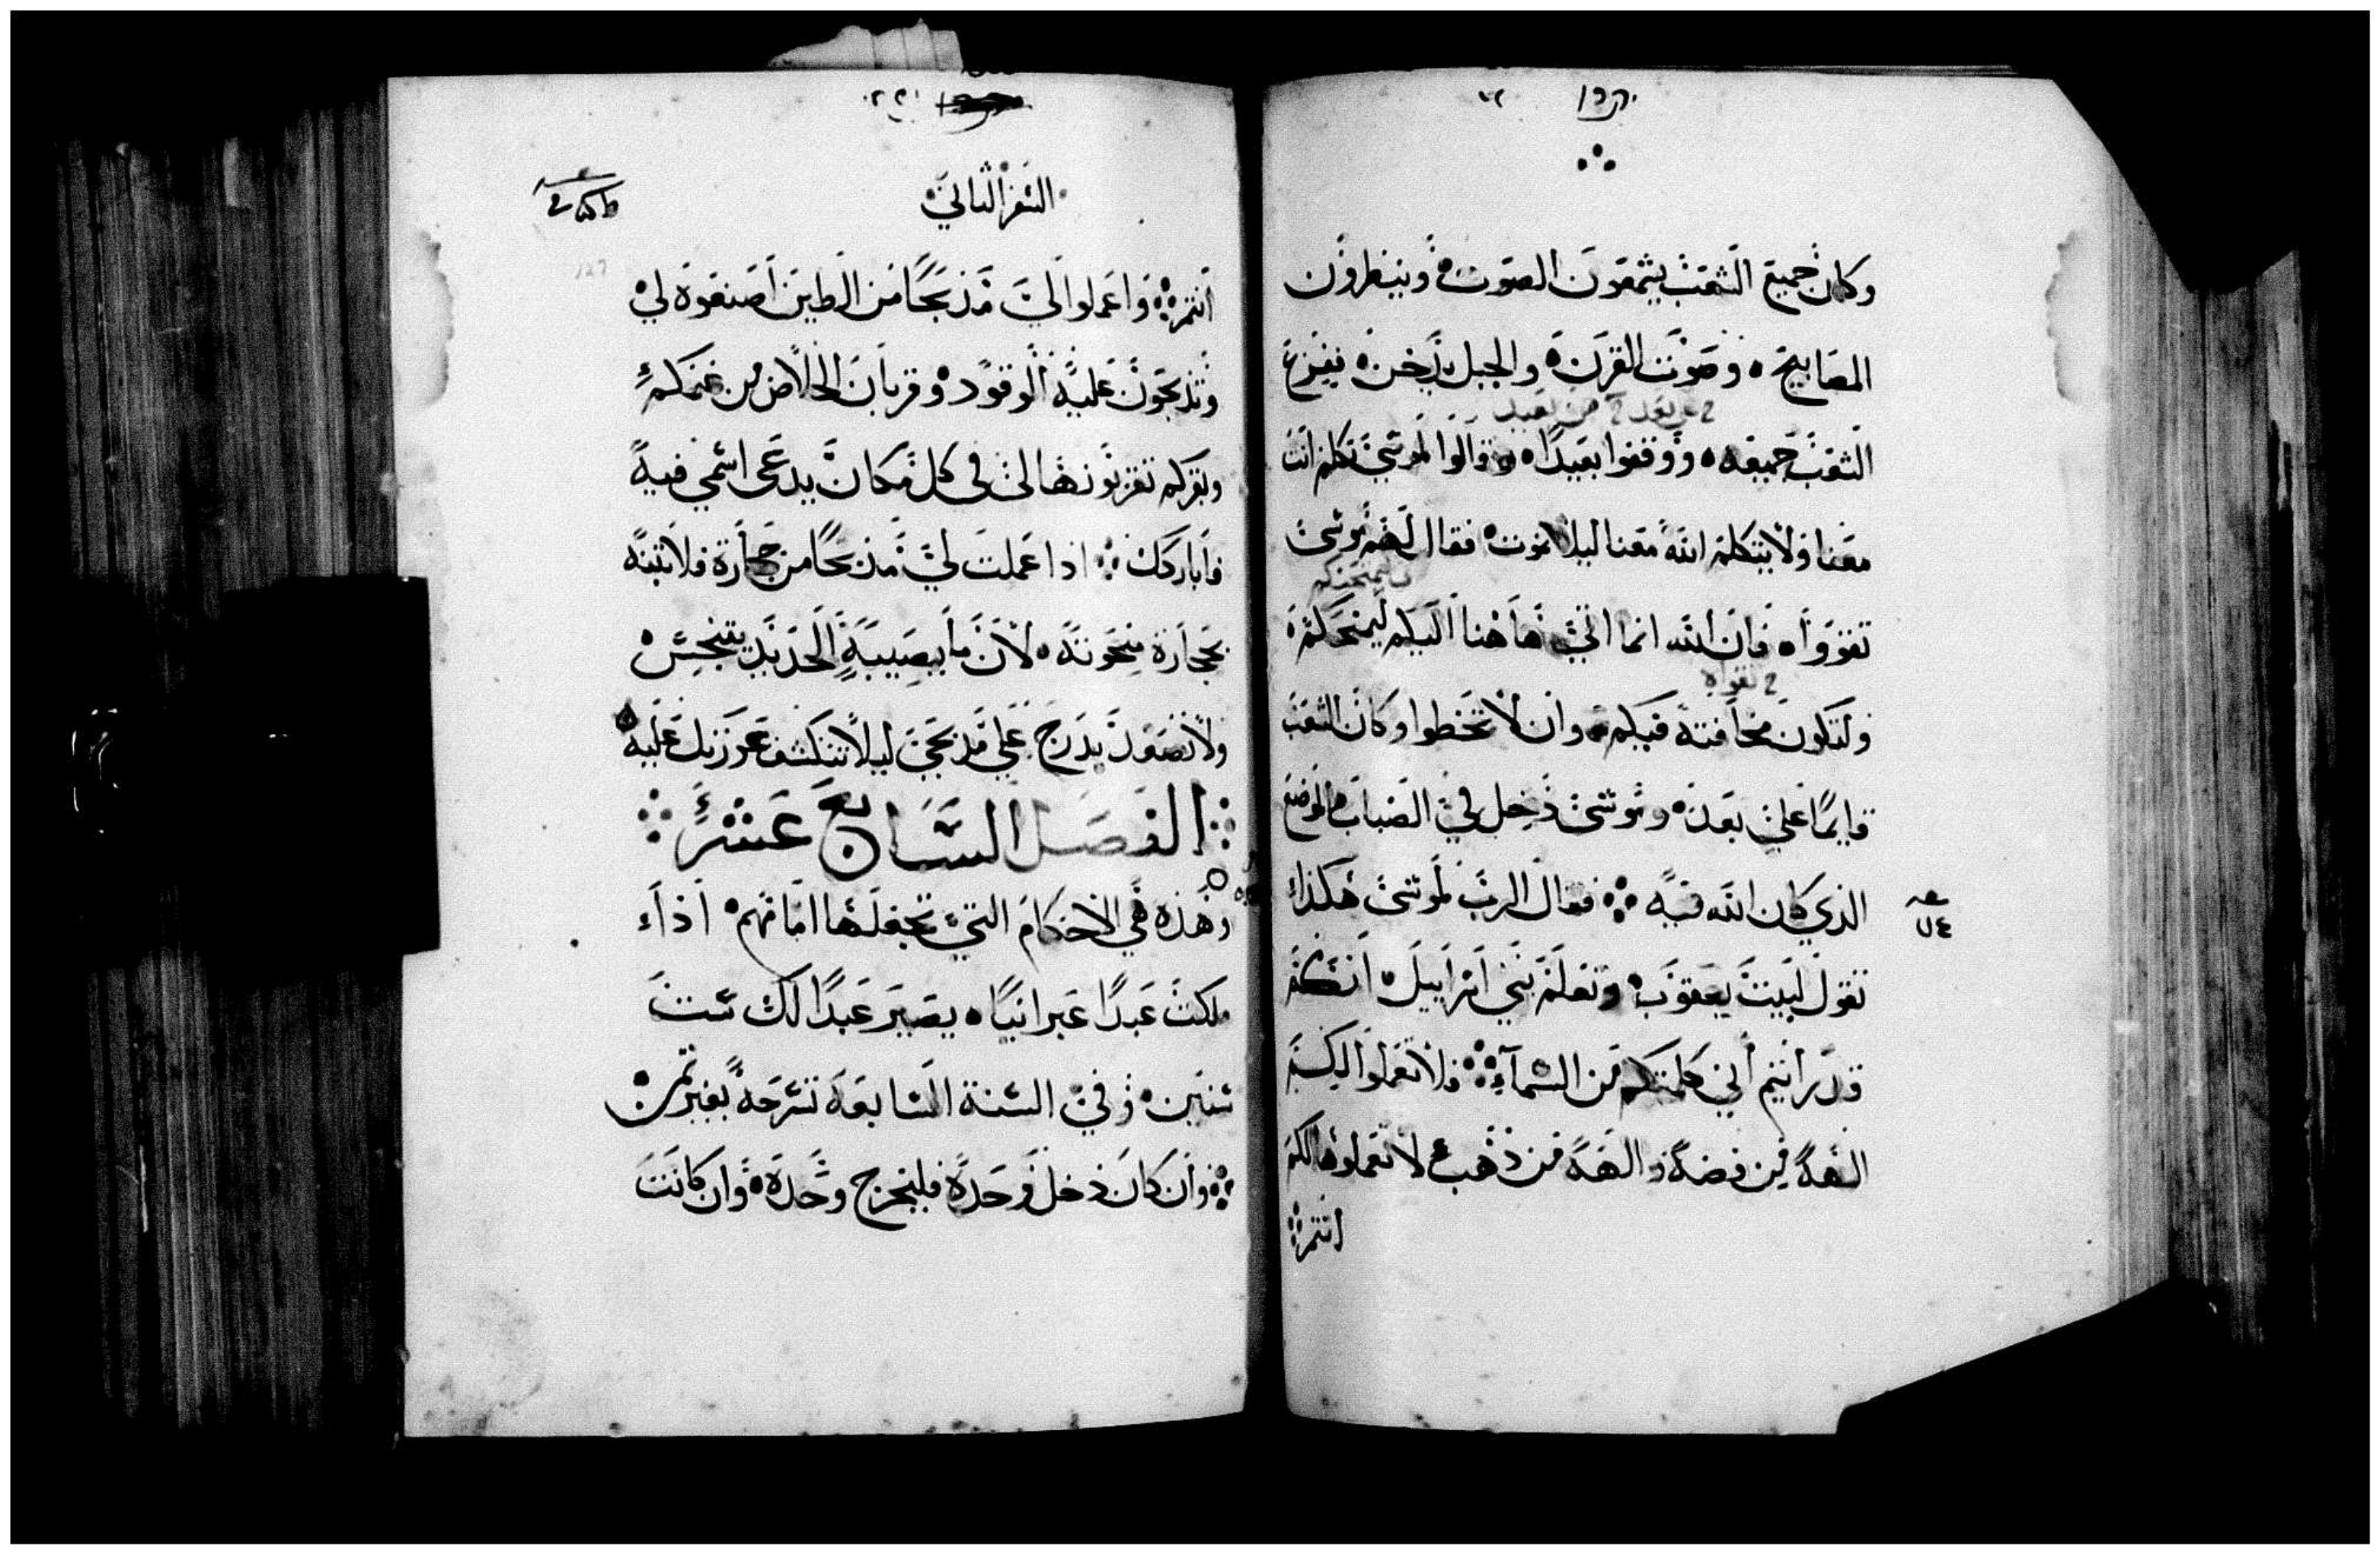 وكان جميع الشعب يسمعون الصوت وينظرون
المصابيح وصوت القرن والجبل يدخن ففزع
الشعب جميعه ووقفوا بعيدا وقالوا لموسي تكلم انت
معنا ولا يتكلم الله معنا ليلا نموت فقال لهم موسي
تقووا فان الله انما اتي هاهنا اليكم ليمتحنكم
ولتكون مخافته فيكم وان لا تخطوا وكان الشعب
قايما علي بعد وموسي دخل في الضباب الموضع
الذي كان الله فيه فقال الرب لموسي هكذا
تقول لبيت يعقوب وتعلم بني اسراييل انكم
قد رايتم اني كلمتكم من السماء فلا تعملوا لكم
الهة من فضة والهة من ذهب لا تعملوها لكم
انتم
السفر الثاني
انتم واعملوا لي مذبحا من الطين اصنعوه لي
وتذبحون عليه الوقود وقربان الخلاص من غنمكم
وبقركم تقربونها لي في كل مكان يدعي اسمي فيه
واباركك اذا عملت لي مذبحا من حجارة فلا تبنه
بحجارة منحوتة لان ما يصيبه الحديد يتنجس
ولا تصعد بدرج علي مذبحي ليلا تنكشف عورتك عليه
الفصل السابع عشر
وهذه هي الاحكام التي تجعلها امامهم اذا
ملكت عبدا عبرانيا يصير عبدا لك ست
سنين وفي السنة السابعة تسرحه بغير ثمن
وان كان دخل وحده فليخرج وحده وان كانت